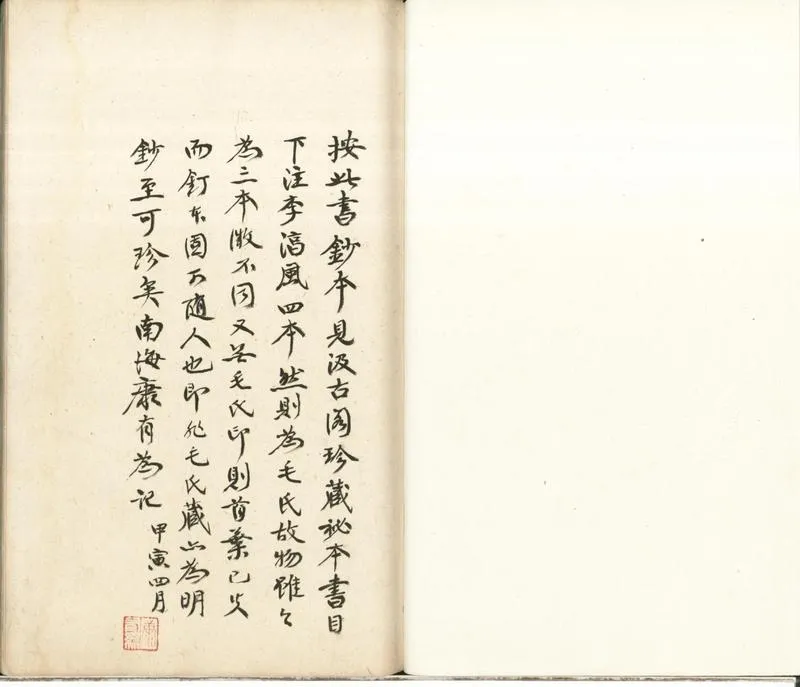 按此書鈔本見汲古閣珍藏秘本書目
下注李淳風四本然則為毛氏故物雖今
為三本微不同又無毛氏印則首葉已失
而釘本固可隨人也即非毛氏藏亦為明
鈔至可珍矣南海康有為記
甲寅四月